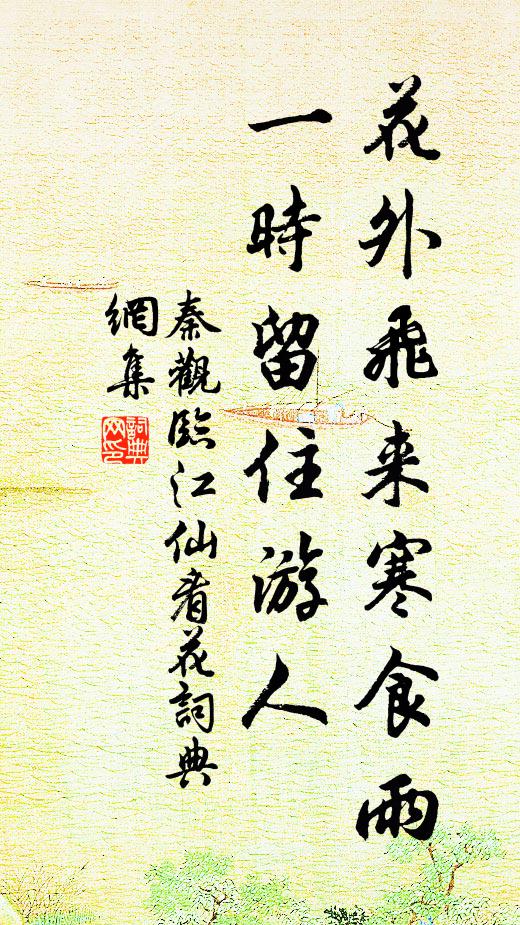 花外飛来寒食雨
一時留住游人
秦觀臨江仙看花詞典
網集
詞典网印